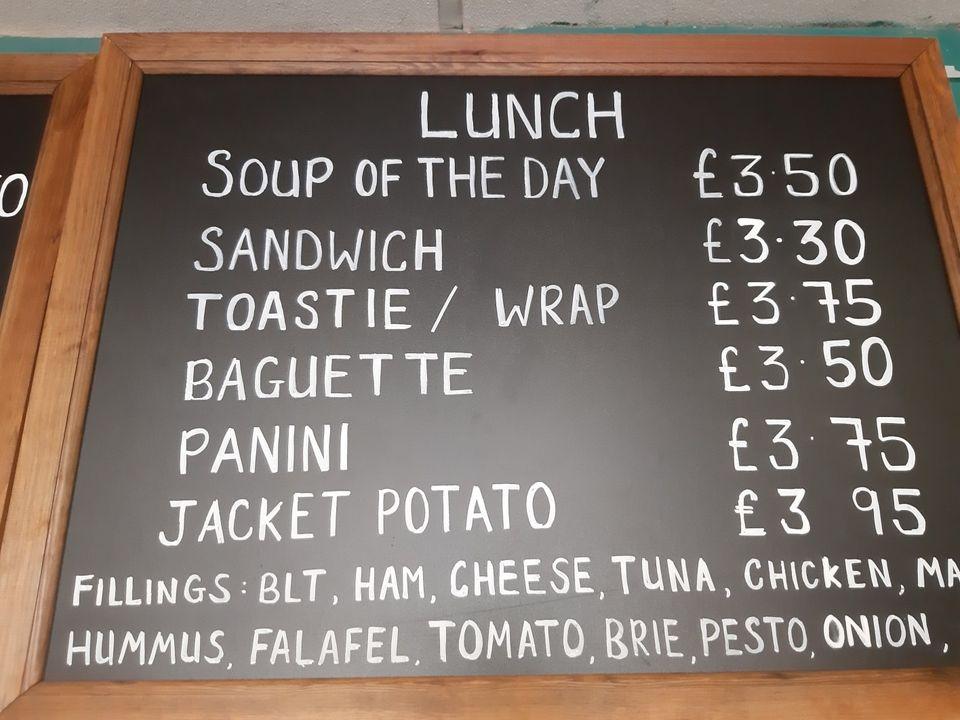 LUNCH
SOUP OF THE DAY £3.50
SANDWICH £3.30
TOASTIE / WRAP £3.75
BAGUETTE £3.50
PANINI £3.75
JACKET POTATO £3 95
FILLINGS: BLT, HAM, CHEESE, TUNA, CHICKEN,
HUMMUS, FALAFEL, TOMATO, BRIE, PESTO, ONION,